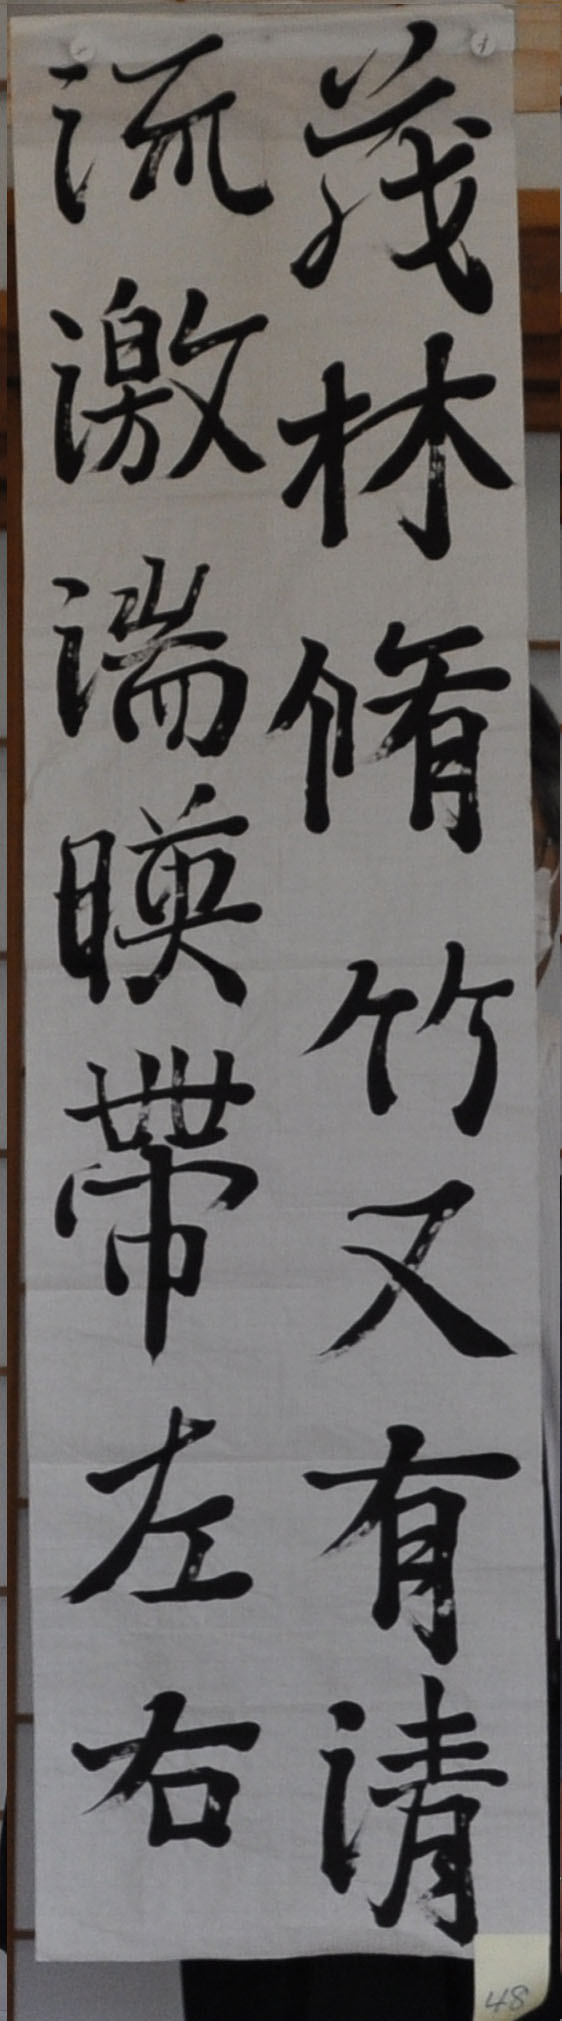 茂林脩竹又有清
流激湍暎帶左右
48